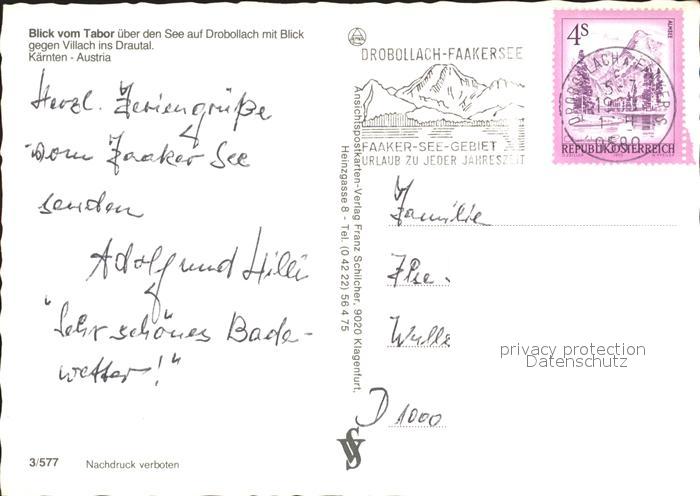 Blick vom Tabor über den See auf Drobollach mit Blick
gegen Villach ins Drautal.
Kärnten - Austria
Herzl. Feriengrüße
vom Faaker See
senden
Adolf und Hilli
"Sehr schönes Bade-
wetter!"
3/577 Nachdruck verboten
Ansichtspostkarten-Verlag Franz Schilcher, 9020 Klagenfurt,
Heinzgasse 8 - Tel. (0 42 22) 56 4 75
DROBOLLACH-FAAKERSEE
FAAKER-SEE-GEBIET
URLAUB ZU JEDER JAHRESZEIT
4S
ALMSEE
REPUBLIK ÖSTERREICH
Familie
Ilse
Wylle
D 1000
privacy protection
Datenschutz